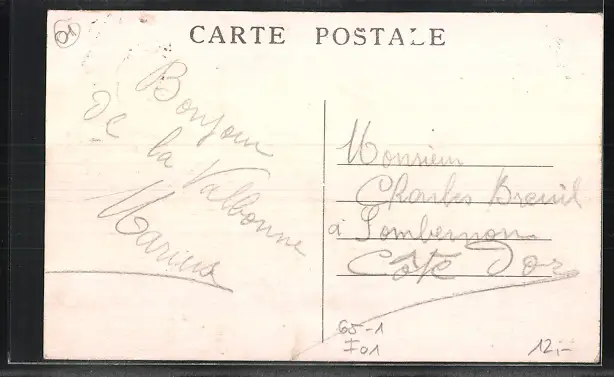 01
CARTE POSTALE
Bonjour
de la Valbonne
Marius
Monsieur
Charles Breuil
à Sombernon
Côte Dor
65-1
I01
12,-